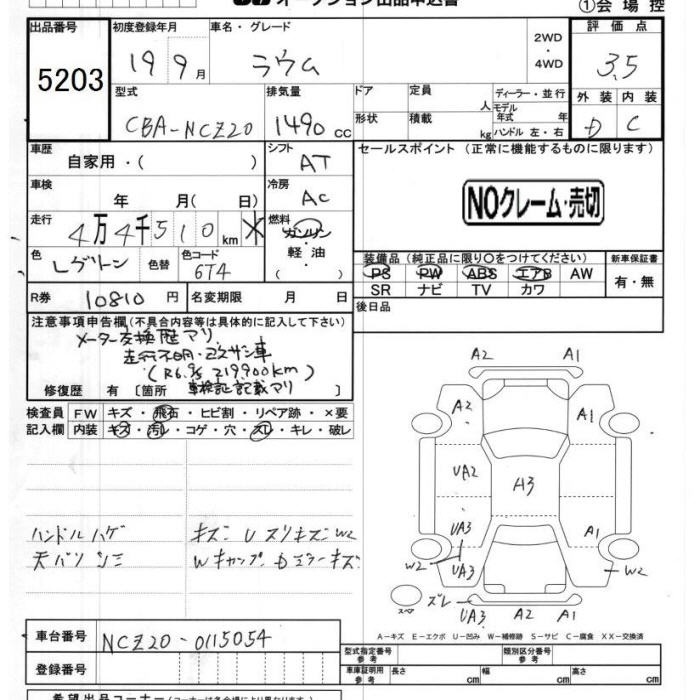 オークション出品申込書
①会場控
出品番号 初度登録年月 車名・グレード 2WD 評価点
5203 19 9月 ラウム ・4WD 3.5
型式 排気量 ドア 定員 ディーラー・並行 外装 内装
CBA-NCZ20 1490 CC 形状 積載 人 kg モデル年式 年 ハンドル 左・右 D C
車歴 シフト セールスポイント (正常に機能するものに限ります)
自家用・( ) AT
車検 冷房 NOクレーム・売切
年 月( 日) AC
走行 燃料
4万4千510 km ガソリン
色 色替 色コード 軽・油 装備品 (純正品に限り〇をつけてください) 新車保証書
Lグリーン 6T4 ( ) PS PW ABS エアB AW 有・無
SR ナビ TV カワ
R券 10810 円 名変期限 月 日 後日品
注意事項申告欄(不具合内容等は具体的に記入して下さい)
メーター交換歴アリ
走行不明・
(R6.9/5 219900km)
修復歴 有 [箇所 車検証記載アリ]
検査員 FW キズ・飛石・ヒビ割・リペア跡・×要
記入欄 内装 キズ・汚レ・コゲ・穴・スレ・キレ・破レ
ハンドルハゲ キズ U スリキズ W2
天バリシミ Wキャップ ミラーキズ
A2 A1
A2 A1
UA2 A3
UA3 A1
W2 UA3 W2
スペ ズレ UA3 A2 A1
A-キズ E-エクボ U-凹み W-補修跡 S-サビ C-腐食 XX-交換済
車台番号 NCZ20-0115054
型式指定番号 参考 類別区分番号 参考
登録番号 車庫証明用 参考 長さ cm 幅 cm 高さ cm
希望出品コーナー